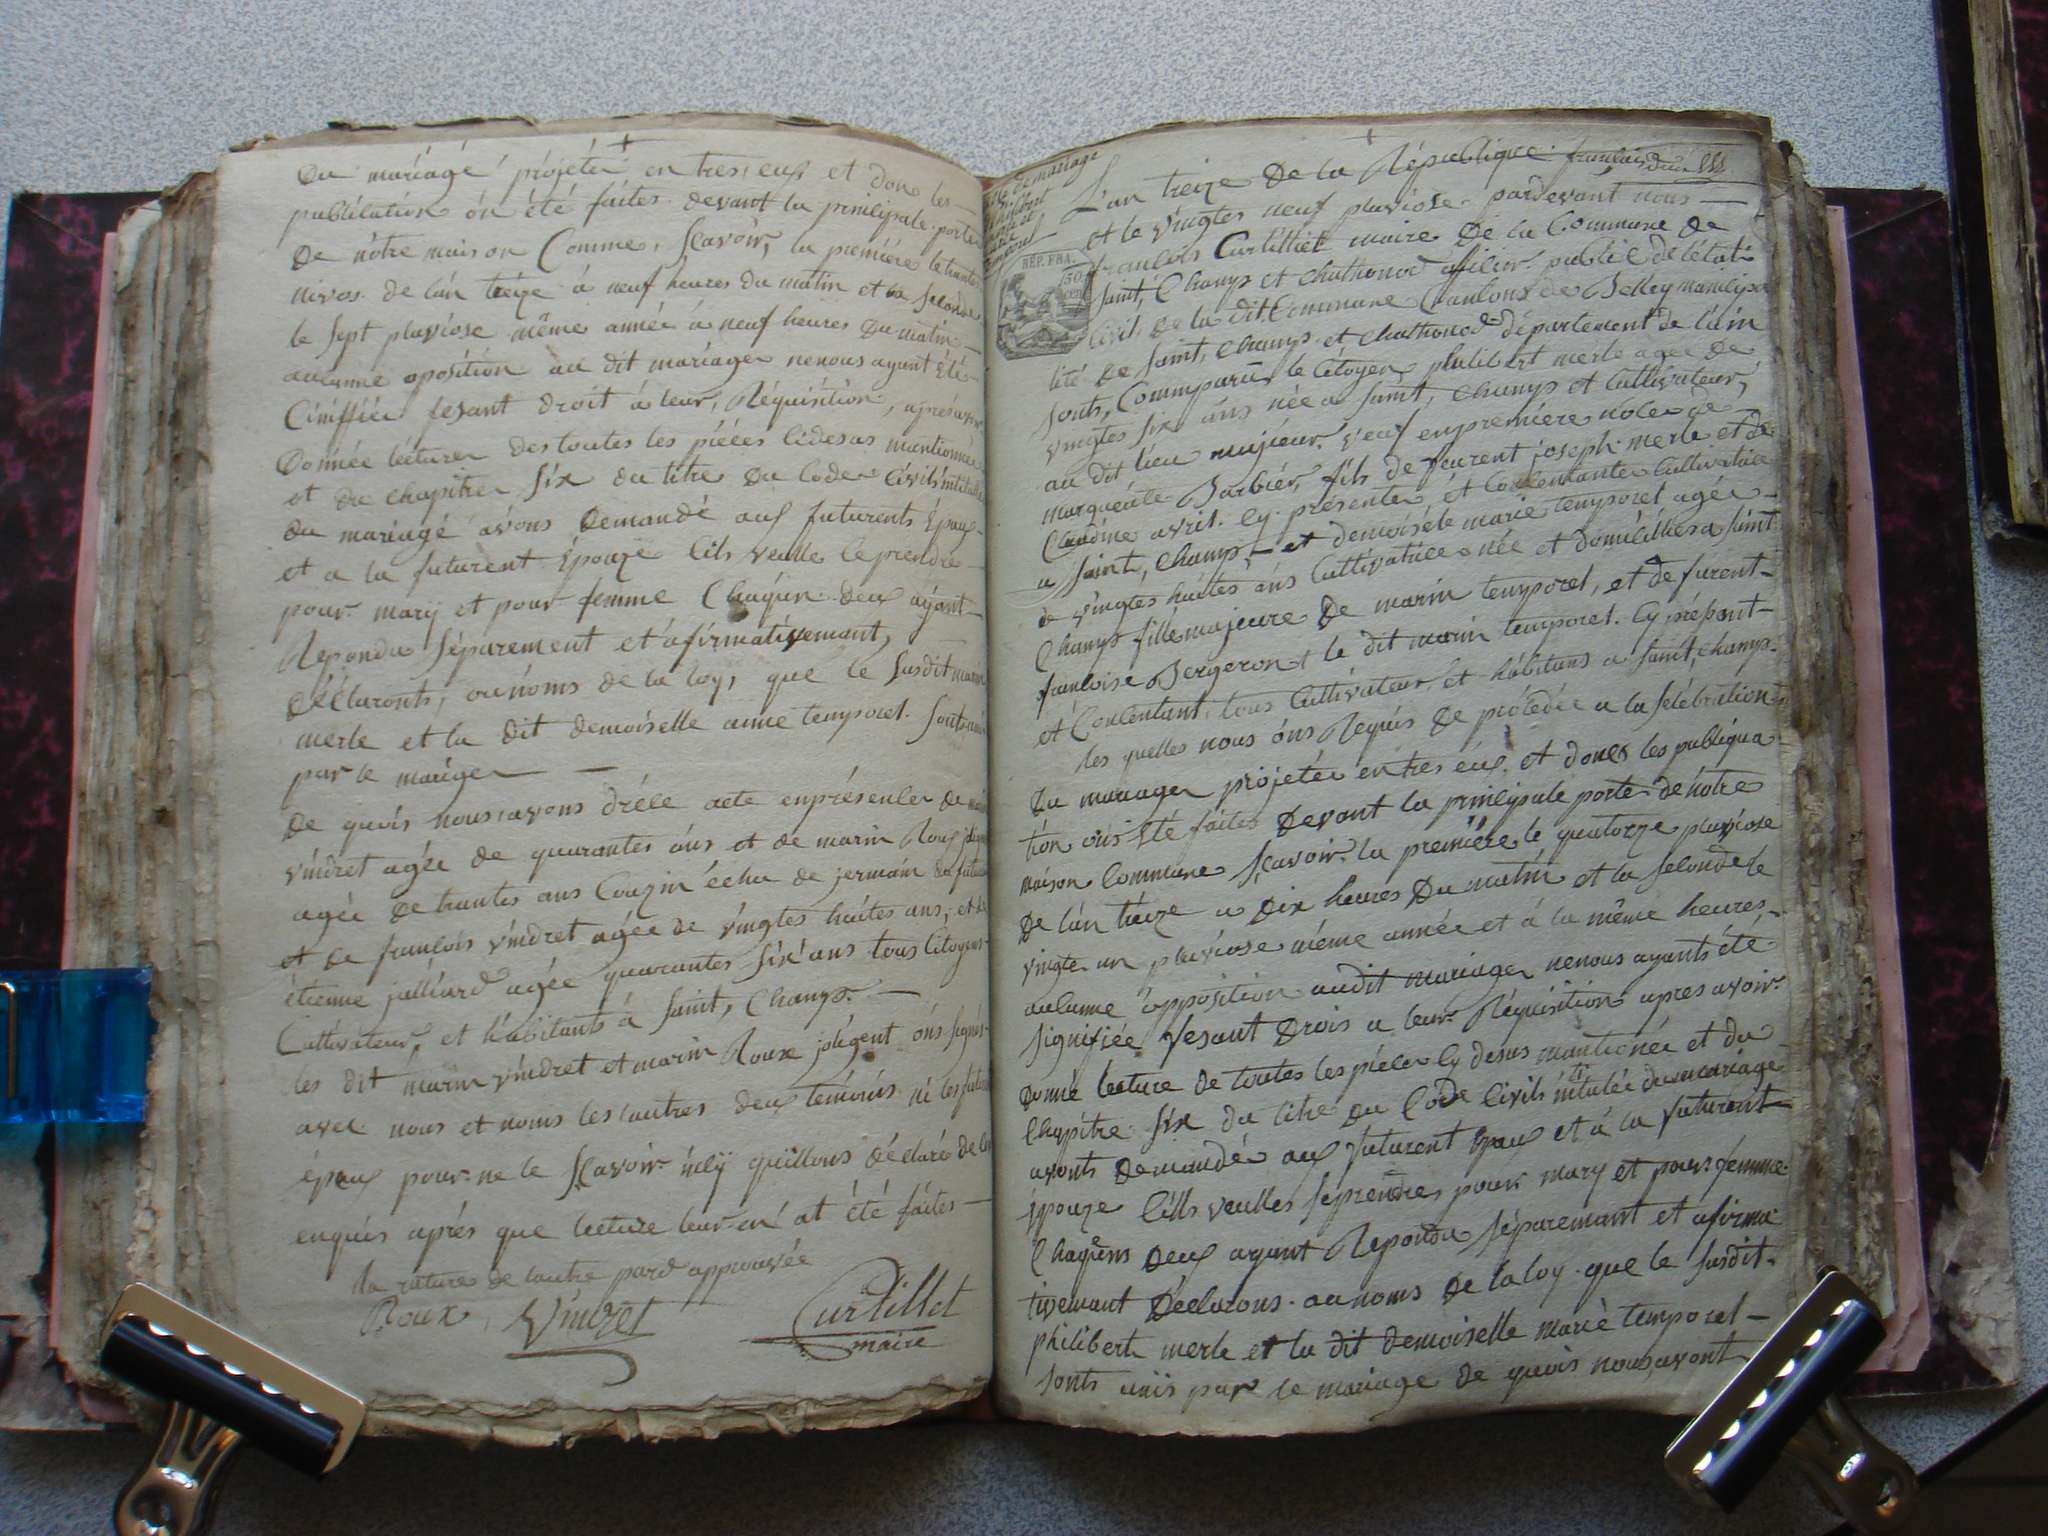 Du mariagé projétér entres, eux et don les
publication ón été fáites devant la principale porte
De nôtre maison Comme, Sçavoir, la premiére le trante
nivos de lán treize à neuf héures du matin et la seconde
le sept pluviose même année à neuf heures Du matin
aucunne oposition au dit mariager nenous ayant été
Ciniffiée fesant droit à leur, Réquisition, aprés avoir
Donnée lécture des toutes les piéces cidesus mantionnée
et du chapitre six du titre du Coder Civils intitullé
Du mariagé avons Demandé aux futurents Epoux
et a la futurent Epouze Cils veulle ce prendre
pour mary et pour femme Chaqún deux ayant
Repondu séparement et afirmativemant,
Déclaronts, au noms de la loy, que le susdit marin
merle et la dit demoiselle aime temporel sont unis
par le mariger
De quois nous, avons dréce acte enprésencler de marin
vindret agée de quarantes áns et de marin Roux
agée de trantes ans Couzin échu de jermain du futur
et de francois vindret agée de vingtes huites ans, et de
étienne julliard agée quarantes six ans tous Citoyens
Cultivateur, et hábitants á Saint, Champs.
les dit marin vindret et marin Roux ons signés
avec nous et noms les autres deux témoins ni les futur
époux pour ne le Sçavoir, déclaré de
enquis aprés que lecture leur en at été fáites
la rature de lautre pard approuvée
Roux, Vindret Curtillet
maire
acte de mariage
philibert
merle et
marie
temporel
REP. FRA.
50
CEN
L'an treize de la République française
et le vingtes neuf pluviose pardevant nous
francois Curtilliet maire de la Commune de
Saint, Champs et Chathonod officier public de létat
Civil de la dit Commune Cantons de Belley
lité de Saint, Champs et Chathonod département de l'ain
sonts Comparu le Citoyen philibert merle agée de
vingtes six áns née a Saint, Champs et Cultivateur,
au dit lieu majieur veuf enpremiére de
marguérite Barbier, fils de feurent joseph merle et de
Claudine avril. Cy présenter et Consentante Cultivatrice
a Saint, Champs, et demoiséle marie temporel agée
de vingtes huites áns Cultivatrice née et domiciliées a Saint
Champs fille majeure de marin temporel, et de furent
francoise Bergeron et le dit marin temporel. Cy présent
et Concentant, tous Cultivateur et hábitans a Saint, Champs.
les quelles nous óns Requis de procédér a la Sélébration
Du mariager projetér entres eux, et dones les publiqua
tion óns Eté faites Devant la principale porte de nôtre
maison Commune Sçavoir la premiére le quatorze pluviose
De lán treize a Dix heures Du matin et la seconde le
vingte un pluviose même année et á la même heures,
aucunne opposition audit mariager nenous ayants été
signifiée fesant Drois a leur Réquisition apres avoir
Donné lecture de toutes les piéces cy desus mantionée et du
Chapitre six du titre du Code Civils intitulée du mariage
avonts demandée aux futurent Epoux et á la futurent
Epouze Cills veulles séprendres pour mary et pour femme
Chaquns deux ayant Repondu séparemant et afirma
tivemant Déclarons au noms De la loy que le susdit
philibert merle et la dit demoiselle marie temporel
sonts unis par le mariage de quois nous, avont